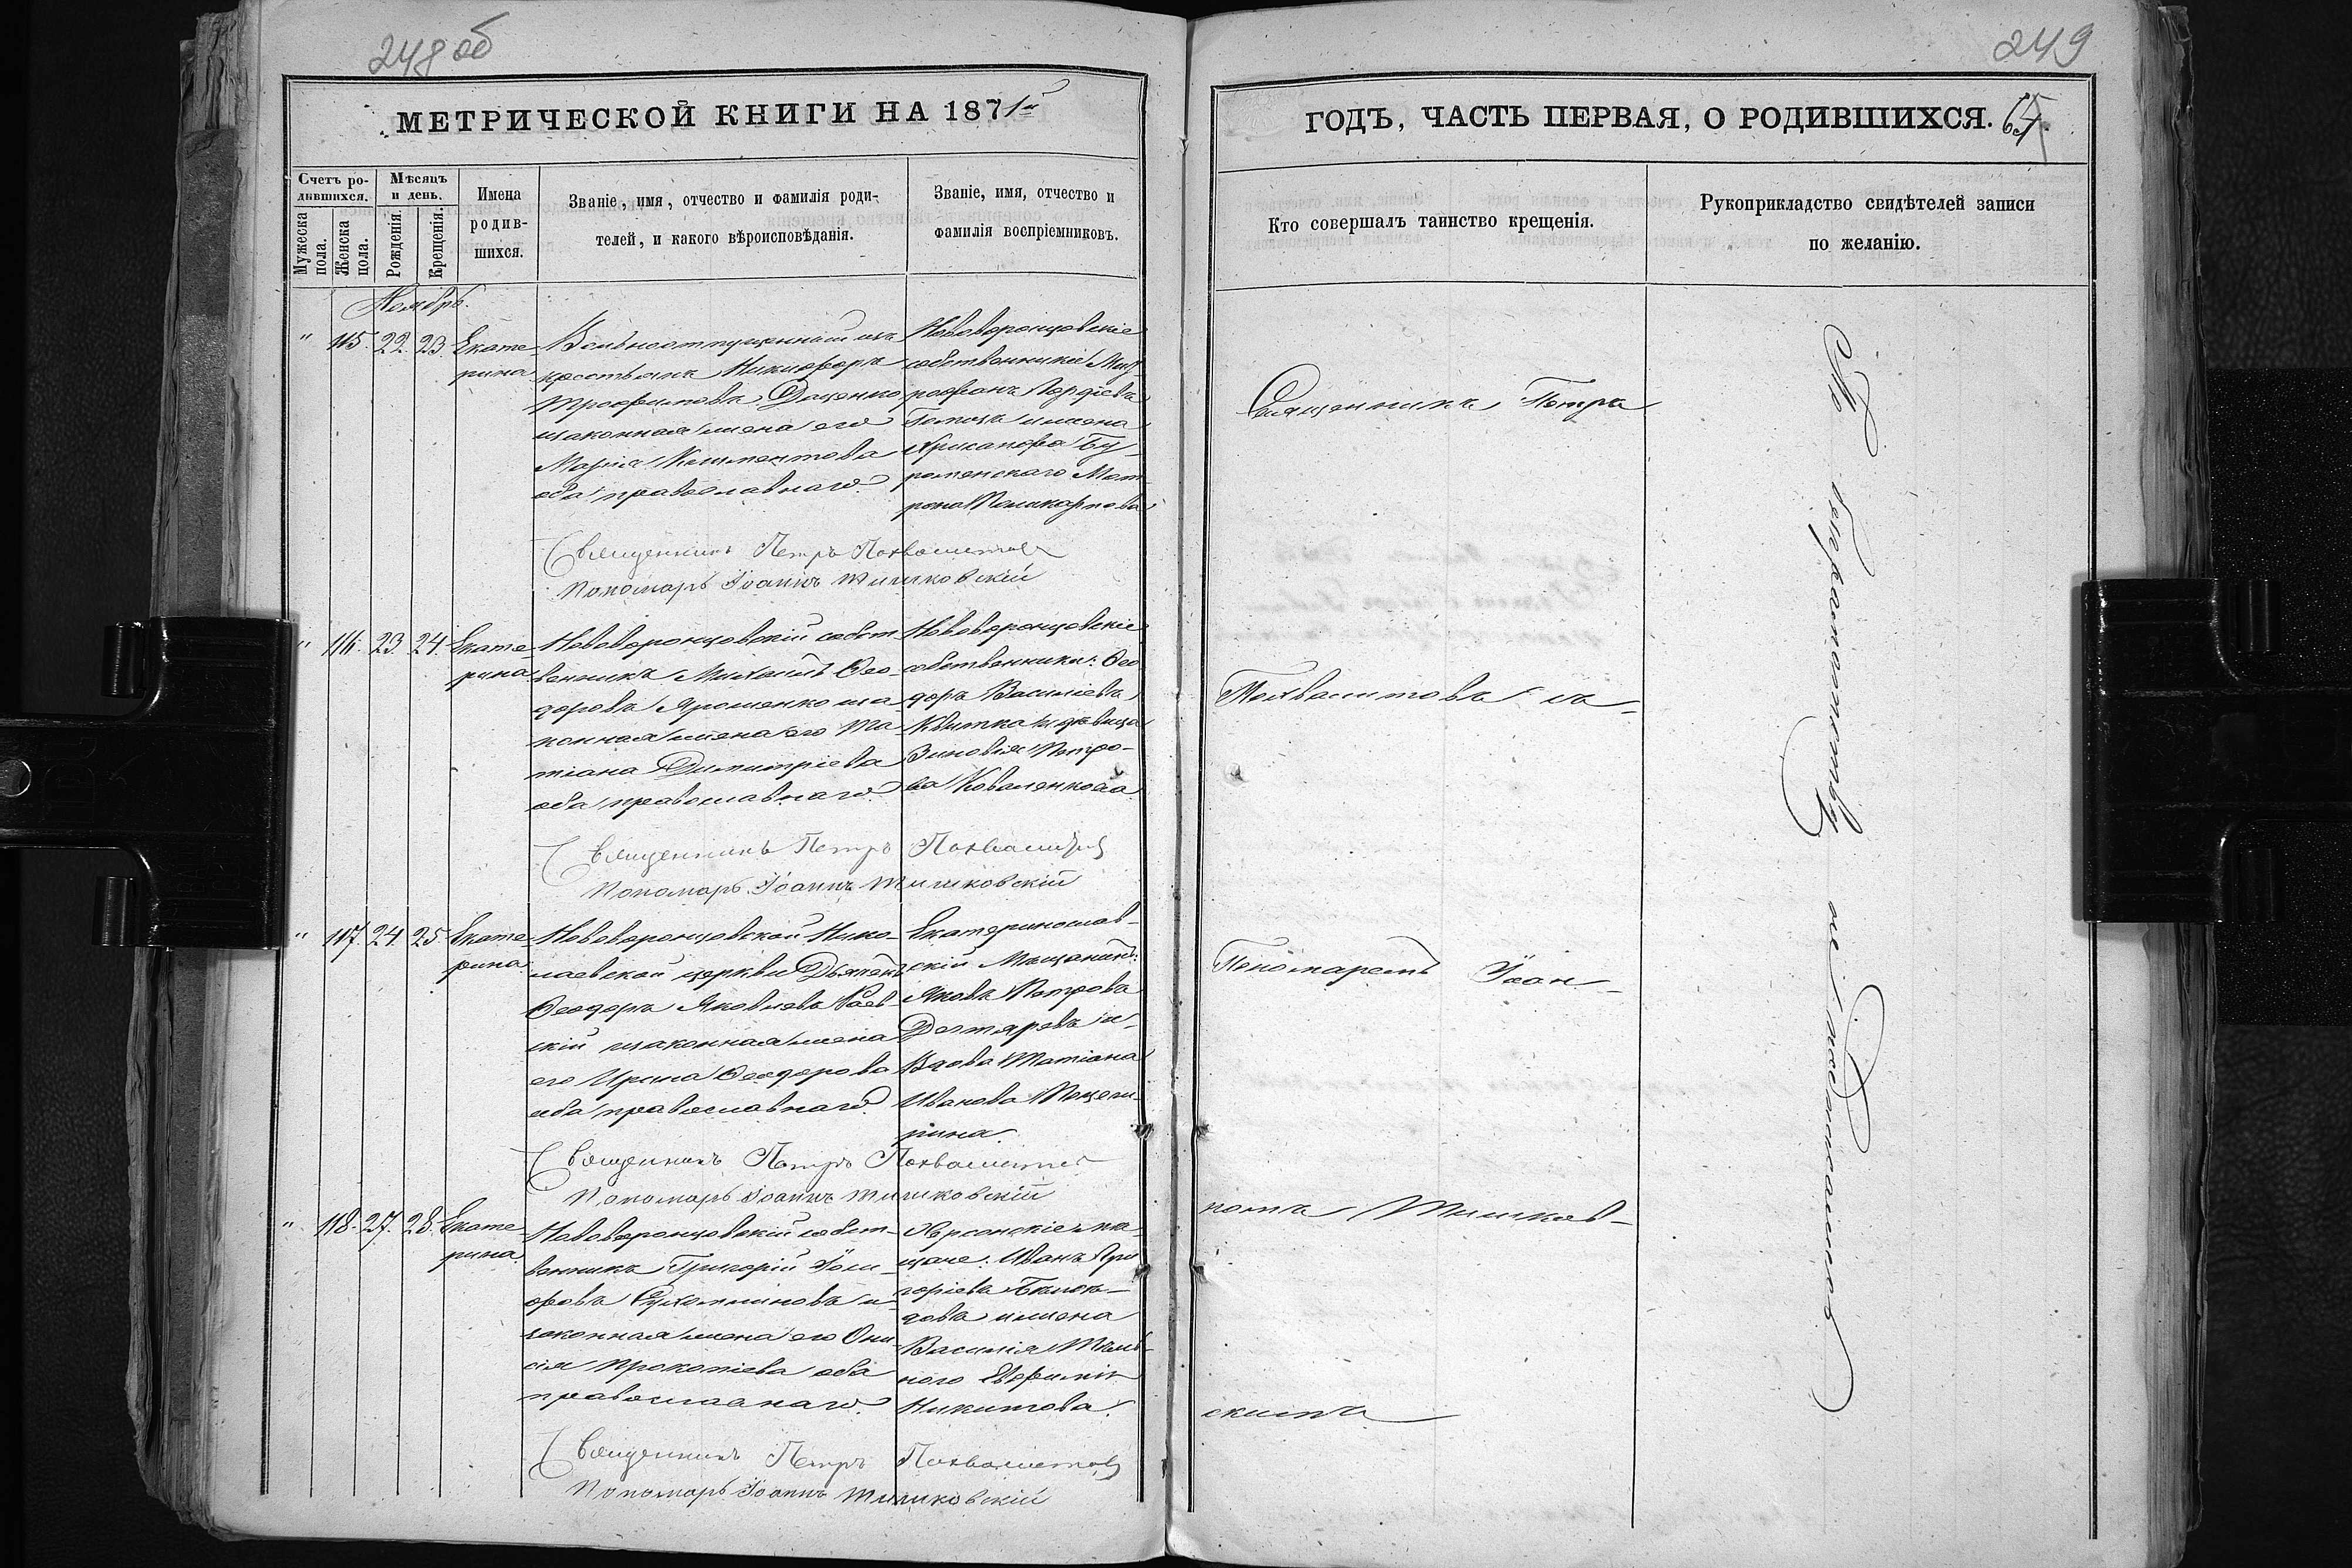 248 об
МЕТРИЧЕСКОЙ КНИГИ НА 1871й
Счетъ ро-
дившихся.
Мужеска пола.
Женска пола.
Мѣсяцъ
и день.
Рожденія.
Крещенія.
Имена
родив-
шихся.
Званіе, имя, отчество и фамилія роди-
телей, и какого вѣроисповѣданія.
Званіе, имя, отчество и
фамилія воспріемниковъ.
Ноябрь.
" 115. 22. 23. Екате
рина
Вольноотпущенный изъ
крестьянъ Никифоръ
Трофимовъ Даценко
изаконная жена его
Марія Климентова
оба православнаго.
Нововоронцовскіе
собственники Мит
рофанъ Гордіевъ
ижена
Хрисанфа Бу
роменскаго Мат
рона Поликарпова
Священникъ Петръ Похвалитовъ
Пономарь Іоаннъ Тишковскій
" 116. 23. 24. Екате
рина
Нововоронцовскій собст
венникъ Михаилъ Ѳео
доровъ Ярошенко иза
конная жена его Та
тіана Димитріева
оба православнаго.
Нововоронцовскіе
собственники: Ѳео
доръ Василіевъ
Квитка идѣвица
Зиновія Петро-
ва Коваленкова
Священникъ Петръ Похвалитовъ
Пономарь Іоаннъ Тишковскій
" 117. 24 25 Екате
рина.
Нововоронцовской Нико-
лаевской церкви Дьяконъ
Ѳеодоръ Яковлевъ Раев-
скій изаконная жена
его Ирина Ѳеодорова
оба православнаго.
Екатеринослав-
скій Мѣщанинъ:
Яковъ Петровъ
Дегтяревъ и
Вдова Татіана
Иванова
Священникъ Петръ Похвалитовъ
Пономарь Іоаннъ Тишковскій
" 118. 27. 28. Екате
рина.
Нововоронцовскій собст-
венникъ Григорій Іоси-
фовъ Сухомлиновъ и
законная жена его Они
сія Прокопіева оба
православнаго.
Херсонскіе мѣ
щане: Иванъ Гри
горіевъ
ижена
Василія
Евфимія
Никитова.
Священникъ Петръ Похвалитовъ
Пономарь Іоаннъ Тишковскій
249
ГОДЪ, ЧАСТЬ ПЕРВАЯ, О РОДИВШИХСЯ. 65.
Кто совершалъ таинство крещенія.
Рукоприкладство свидѣтелей записи
по желанію.
Священникъ Петръ
Похвалитовъ съ
Пономаремъ Іоан-
номъ Тишков-
скимъ
По неграмотству не росписались